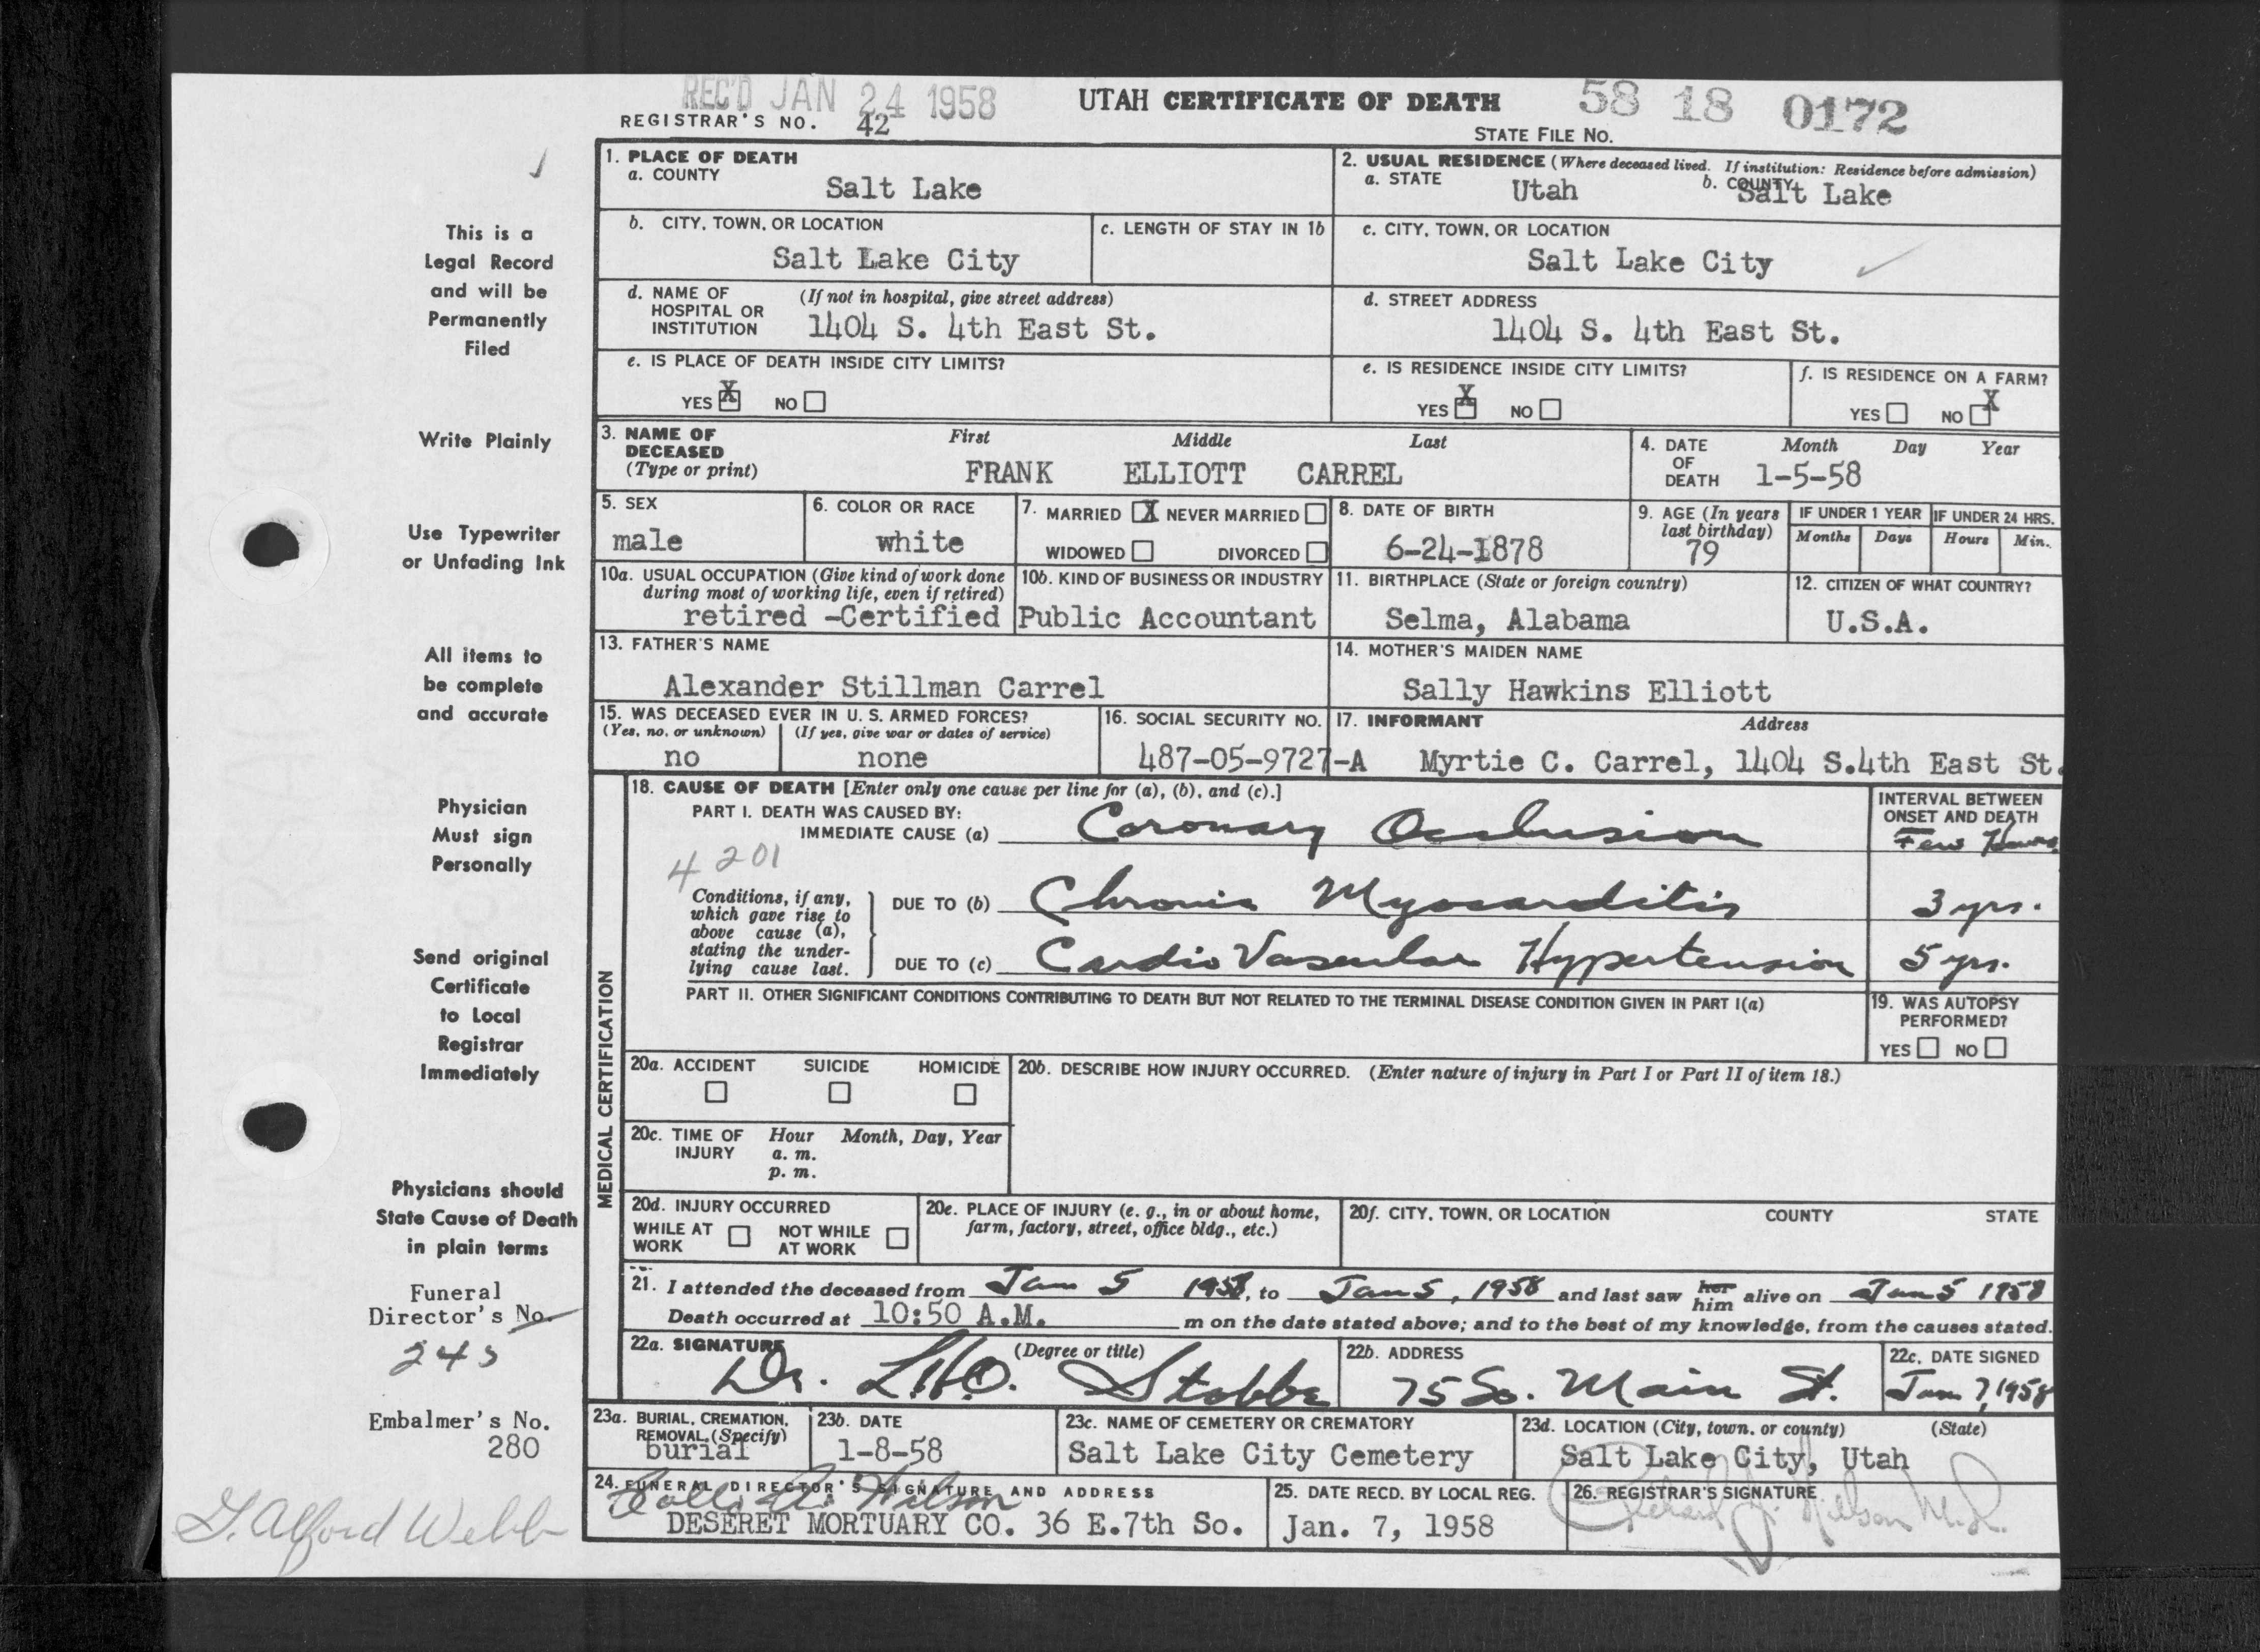 REC'D JAN 24 1958
UTAH CERTIFICATE OF DEATH
58 18 0172
REGISTRAR'S NO. 42
STATE FILE NO.
1. PLACE OF DEATH
a. COUNTY
Salt Lake
2. USUAL RESIDENCE (Where deceased lived. If institution: Residence before admission)
a. STATE Utah b. COUNTY Salt Lake
b. CITY, TOWN, OR LOCATION
Salt Lake City
c. LENGTH OF STAY IN 1b
c. CITY, TOWN, OR LOCATION
Salt Lake City
d. NAME OF HOSPITAL OR INSTITUTION
(If not in hospital, give street address)
1404 S. 4th East St.
d. STREET ADDRESS
1404 S. 4th East St.
e. IS PLACE OF DEATH INSIDE CITY LIMITS?
YES X NO
e. IS RESIDENCE INSIDE CITY LIMITS?
YES X NO
f. IS RESIDENCE ON A FARM?
YES NO X
3. NAME OF DECEASED (Type or print)
First Middle Last
FRANK ELLIOTT CARREL
4. DATE OF DEATH
Month Day Year
1-5-58
5. SEX
male
6. COLOR OR RACE
white
7. MARRIED X NEVER MARRIED
WIDOWED DIVORCED
8. DATE OF BIRTH
6-24-1878
9. AGE (In years last birthday)
79
IF UNDER 1 YEAR
Months Days
IF UNDER 24 HRS.
Hours Min.
10a. USUAL OCCUPATION (Give kind of work done during most of working life, even if retired)
10b. KIND OF BUSINESS OR INDUSTRY
retired -Certified Public Accountant
11. BIRTHPLACE (State or foreign country)
Selma, Alabama
12. CITIZEN OF WHAT COUNTRY?
U.S.A.
13. FATHER'S NAME
Alexander Stillman Carrel
14. MOTHER'S MAIDEN NAME
Sally Hawkins Elliott
15. WAS DECEASED EVER IN U. S. ARMED FORCES?
(Yes, no, or unknown) (If yes, give war or dates of service)
no none
16. SOCIAL SECURITY NO.
487-05-9727-A
17. INFORMANT Address
Myrtie C. Carrel, 1404 S.4th East St.
MEDICAL CERTIFICATION
18. CAUSE OF DEATH [Enter only one cause per line for (a), (b), and (c).]
PART I. DEATH WAS CAUSED BY:
IMMEDIATE CAUSE (a) Coronary Occlusion
INTERVAL BETWEEN ONSET AND DEATH
Few Hours
4201
Conditions, if any, which gave rise to above cause (a), stating the underlying cause last.
DUE TO (b) Chronic Myocarditis 3 yrs.
DUE TO (c) Cardio Vascular Hypertension 5 yrs.
PART II. OTHER SIGNIFICANT CONDITIONS CONTRIBUTING TO DEATH BUT NOT RELATED TO THE TERMINAL DISEASE CONDITION GIVEN IN PART I(a)
19. WAS AUTOPSY PERFORMED?
YES NO
20a. ACCIDENT SUICIDE HOMICIDE
20b. DESCRIBE HOW INJURY OCCURRED. (Enter nature of injury in Part I or Part II of item 18.)
20c. TIME OF INJURY
Hour Month, Day, Year
a. m.
p. m.
20d. INJURY OCCURRED
WHILE AT WORK NOT WHILE AT WORK
20e. PLACE OF INJURY (e. g., in or about home, farm, factory, street, office bldg., etc.)
20f. CITY, TOWN, OR LOCATION COUNTY STATE
21. I attended the deceased from Jan 5 1958, to Jan 5, 1958 and last saw her him alive on Jan 5 1958
Death occurred at 10:50 A.M. m on the date stated above; and to the best of my knowledge, from the causes stated.
22a. SIGNATURE (Degree or title)
Dr. L.H.O. Stobbe
22b. ADDRESS
75 So. Main St.
22c. DATE SIGNED
Jan 7, 1958
23a. BURIAL, CREMATION, REMOVAL (Specify)
burial
23b. DATE
1-8-58
23c. NAME OF CEMETERY OR CREMATORY
Salt Lake City Cemetery
23d. LOCATION (City, town, or county) (State)
Salt Lake City, Utah
24. FUNERAL DIRECTOR'S SIGNATURE AND ADDRESS
DESERET MORTUARY CO. 36 E.7th So.
25. DATE RECD. BY LOCAL REG.
Jan. 7, 1958
26. REGISTRAR'S SIGNATURE
This is a
Legal Record
and will be
Permanently
Filed
Write Plainly
Use Typewriter
or Unfading Ink
All items to
be complete
and accurate
Physician
Must sign
Personally
Send original
Certificate
to Local
Registrar
Immediately
Physicians should
State Cause of Death
in plain terms
Funeral
Director's No.
245
Embalmer's No.
280
G. Alford Webb